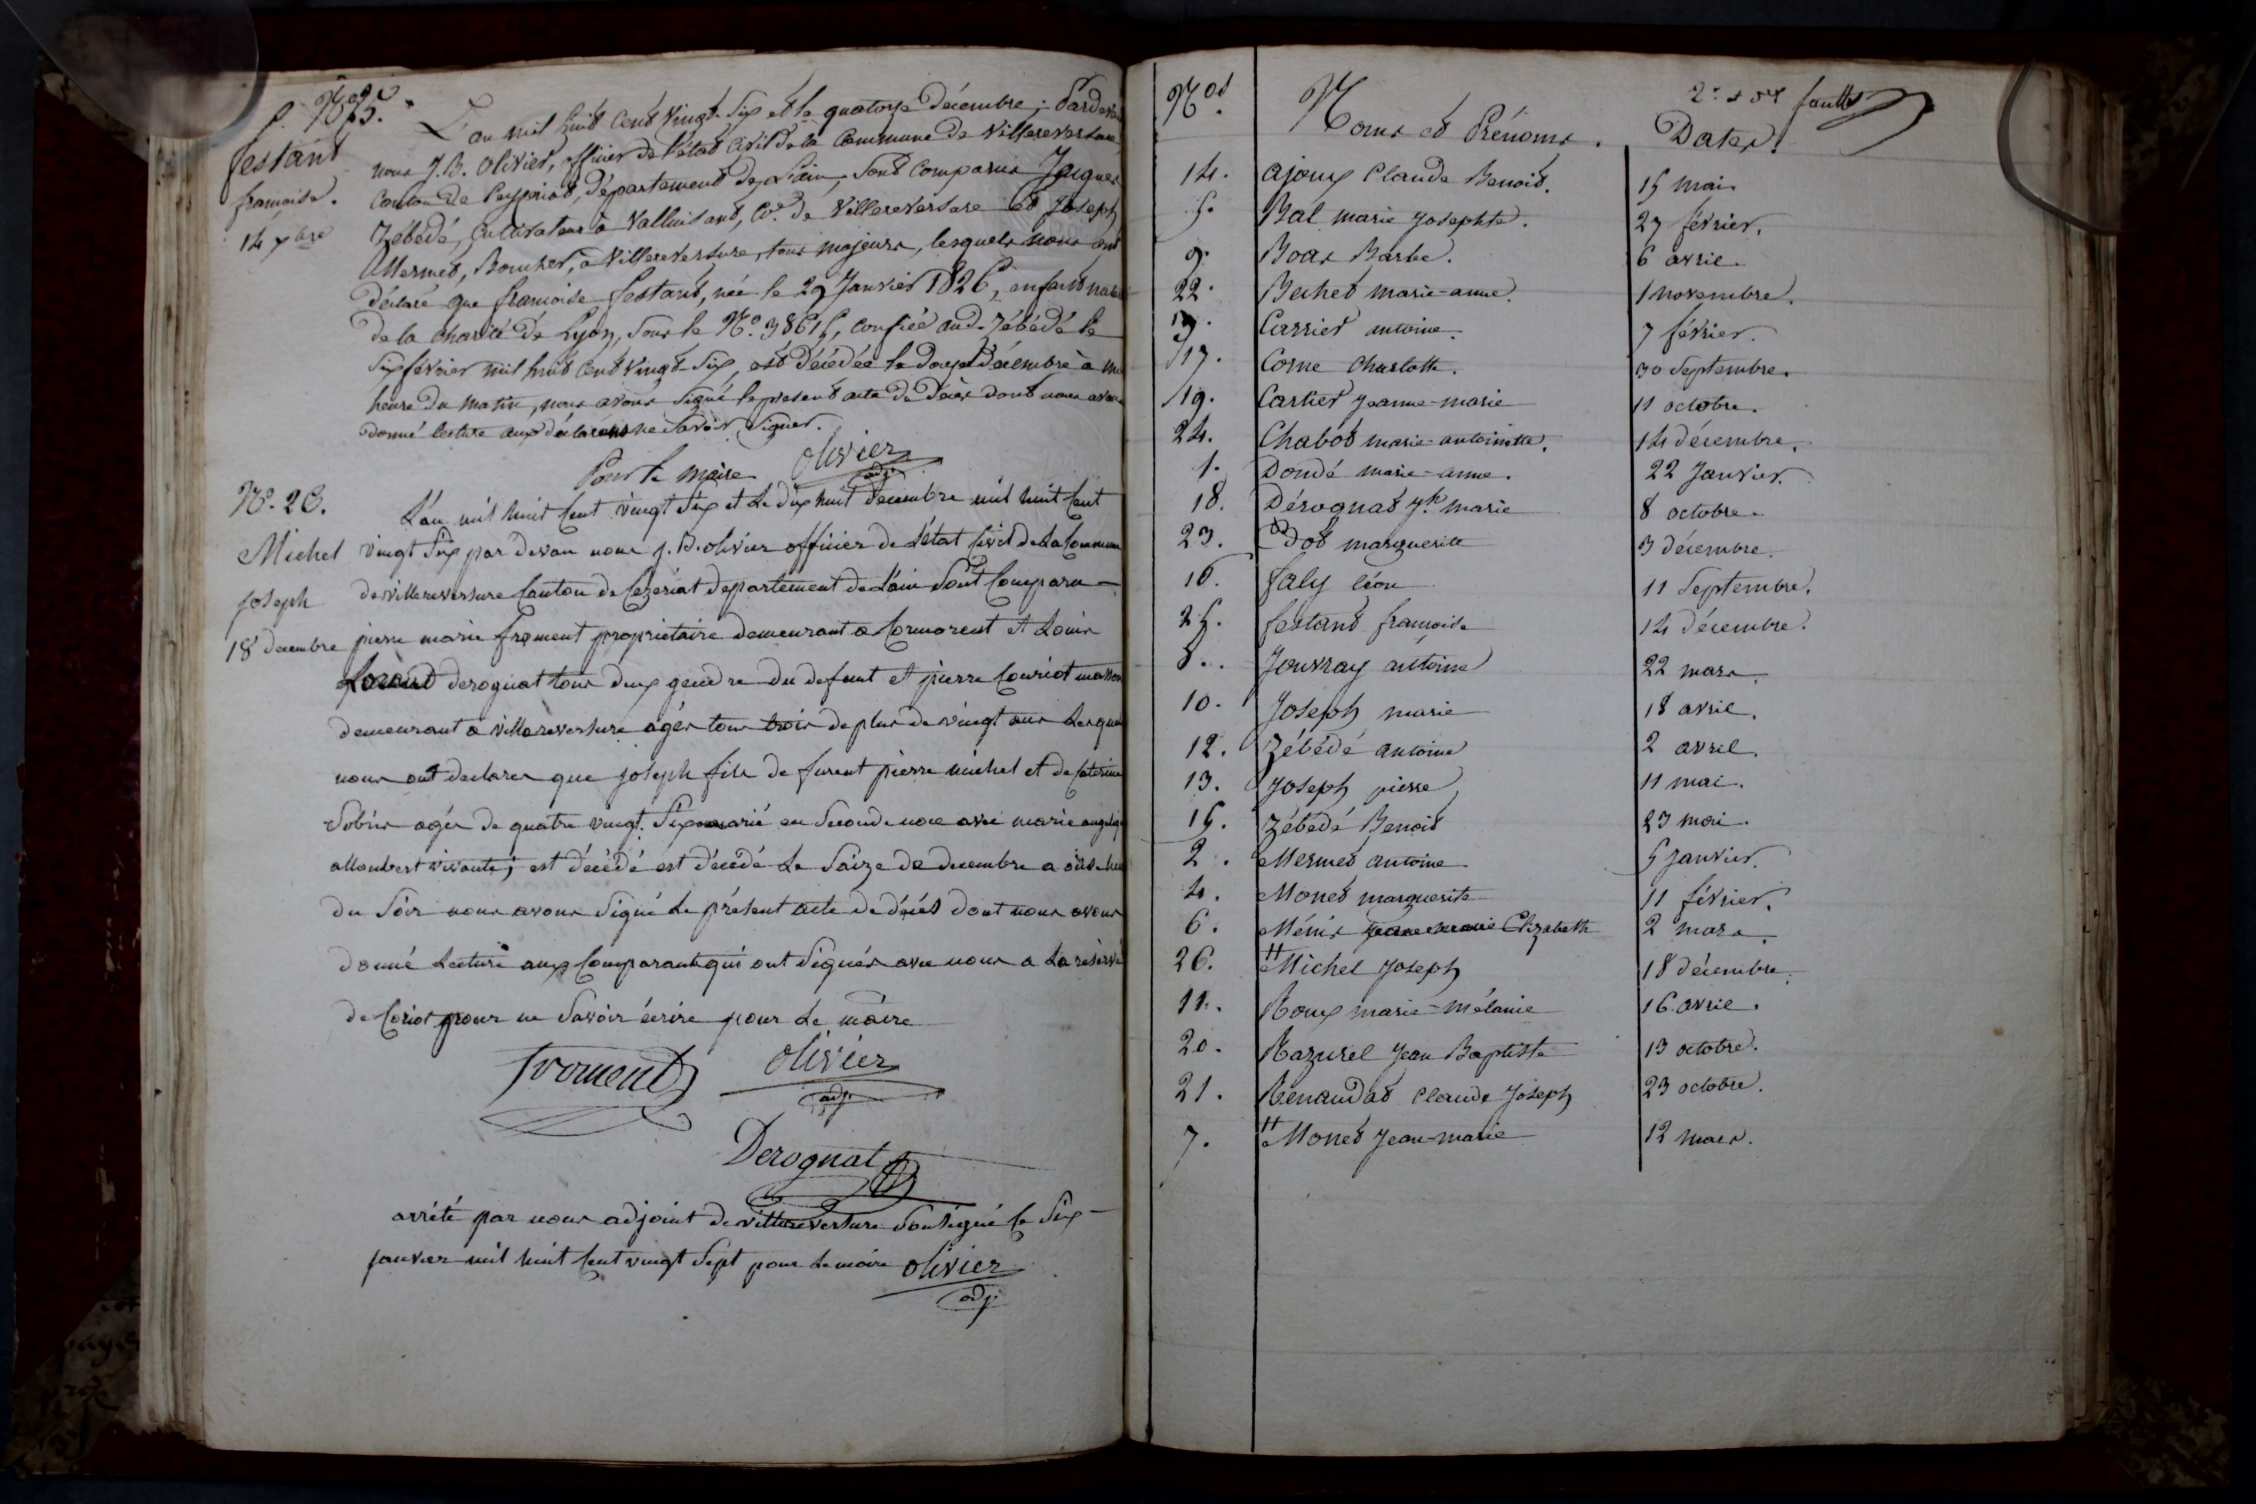 N.º 25.
festant
françoise.
14 Xbre
L'an mil huit cent vingt-six et le quatorze Décembre; Pardevan
nous J. B. Olivier, officier de l'état civil de la Commune de Villereversure,
canton de Ceyzériat, département de l'ain, sont comparus Jacques
Zébédé, Cultivateur à Valluisant, Cne de Villereversure et Joseph
Mermet, Boucher, à Villereversure, tous majeurs, lesquels nous ont
déclaré que françoise festant, née le 29 Janvier 1826, enfant
de la charité de Lyon, sous le N.º confiée aud. Zébédé le
six février mil huit cent vingt-six, est décédée le douze Décembre à une
heure du matin, nous avons signé le present acte de Décès dont nous avons
donné lecture aux déclarans ne savoir signer.
Pour le maire olivier
adj.
N.º 26.
Michel
joseph
18 decembre
L'an mil huit cent vingt six et le dix huit decembre mil huit cent
vingt six par devan nous j. B. olivier officier de L'état civil de La Commune
de villereversure Canton de Cezeriat departement de L'ain sont Comparu
pierre marie froment proprietaire demeurant a Cormorent et Louis
derognat tous deux gendre du defunt et pierre Couriot
demeurant a villereversure agés tous trois de plus de vingt ans
nous ont declarer que joseph fils de furent pierre michel et de Caterine
agés de quatre vingt six marié en seconde noce avec marie
allombert vivante; est décédé est décédé Le Saize de decembre a
du soir nous avons signé Le présent acte de décés dont nous avons
donné Lecture aux Comparant qui ont signés avec nous a La réserve
de Coriot pour ne savoir écrire pour Le maire
froment olivier
adj.
Derognat
arrété par nous adjoint de villereversure Sousigné le Six
janvier mil huit Cent vingt Sept pour Le maire olivier
adj.
N.os Noms et Prénoms. Dates.
14. ajoux Claude Benoit. 15 mai
5. Bal marie Josephte. 27 février.
9. Boas Barbe. 6 avril.
22. Bechet marie-anne. 1 novembre.
3. Carrier antoine. 7 février.
17. Corne Charlotte. 30 Septembre.
19. Carrier Jeanne-marie 11 octobre.
24. Chabot marie-antoinette. 14 décembre.
1. Dondé marie-anne. 22 Janvier.
18. Dérognat Jh marie 8 octobre.
23. Dot marguerite 3 décembre.
16. faly léon 11 Septembre.
25. festant françoise 14 décembre.
8. Jouvray antoine 22 mars.
10. Joseph marie 18 avril.
12. Zébédé antoine 2 avril.
13. Joseph pierre 11 mai.
15. Zébédé Benoit 23 mai.
2. Mermet antoine 5 janvier.
4. Monet marguerite 11 février.
6. Ménis Elizabeth 2 mars.
26. Michel Joseph 18 décembre.
11. Roux marie-mélanie 16 avril.
20. Razurel Jean Baptiste 13 octobre.
21. Renaudat Claude Joseph 23 octobre.
7. Monet Jean-marie 12 mars.